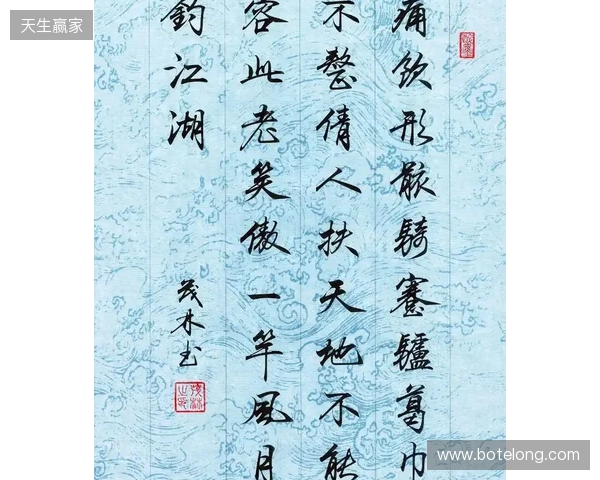 天生赢家
痛飲形骸騎蹇驢葛巾
不整倩人扶天地不能
容此老笑傲一竿風月
釣江湖
茂林书
www.botelong.com